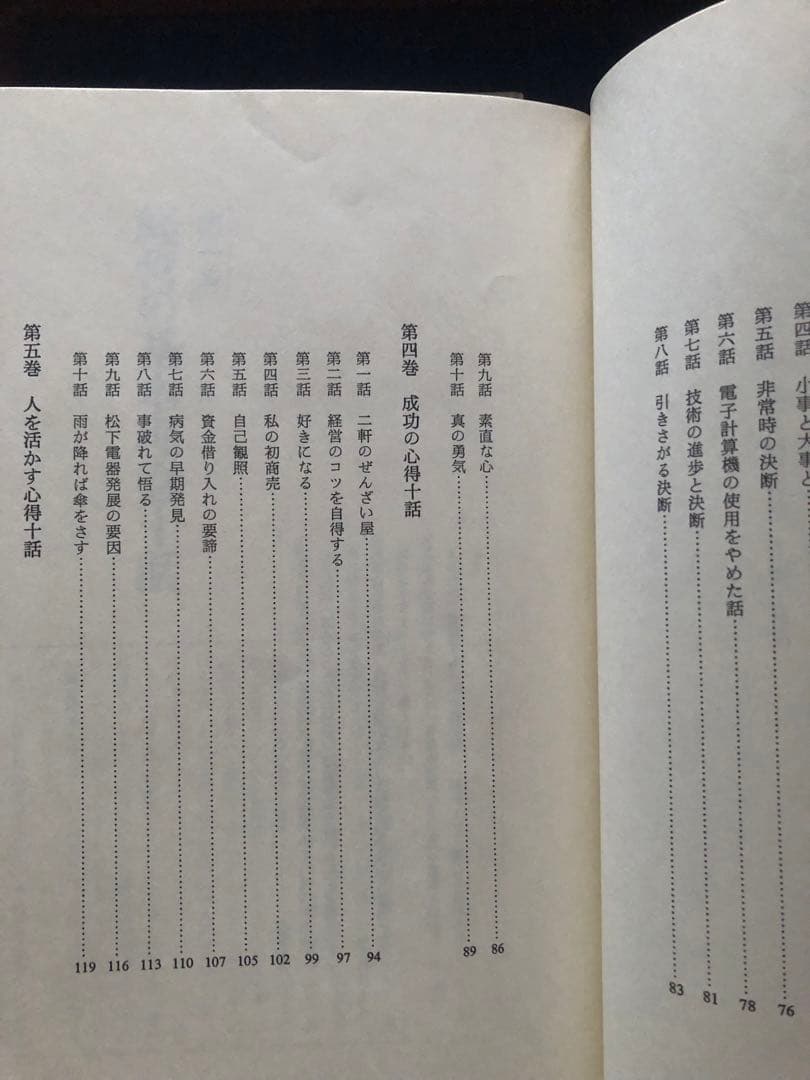 第四話　小事と大事と
第五話　非常時の決断 76
第六話　電子計算機の使用をやめた話 78
第七話　技術の進歩と決断 81
第八話　引きさがる決断 83
第九話　素直な心 86
第十話　真の勇気 89
第四巻　成功の心得十話
第一話　二軒のぜんざい屋 94
第二話　経営のコツを自得する 97
第三話　好きになる 99
第四話　私の初商売 102
第五話　自己観照 105
第六話　資金借り入れの要諦 107
第七話　病気の早期発見 110
第八話　事破れて悟る 113
第九話　松下電器発展の要因 116
第十話　雨が降れば傘をさす 119
第五巻　人を活かす心得十話